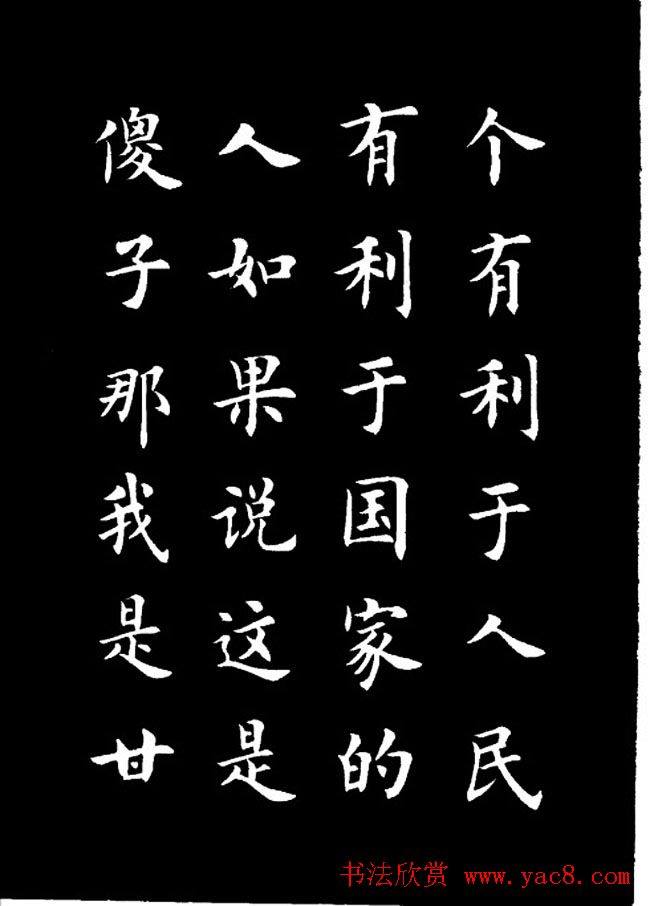 个有利于人民
有利于国家的
人如果说这是
傻子那我是甘
书法欣赏 www.yac8.com